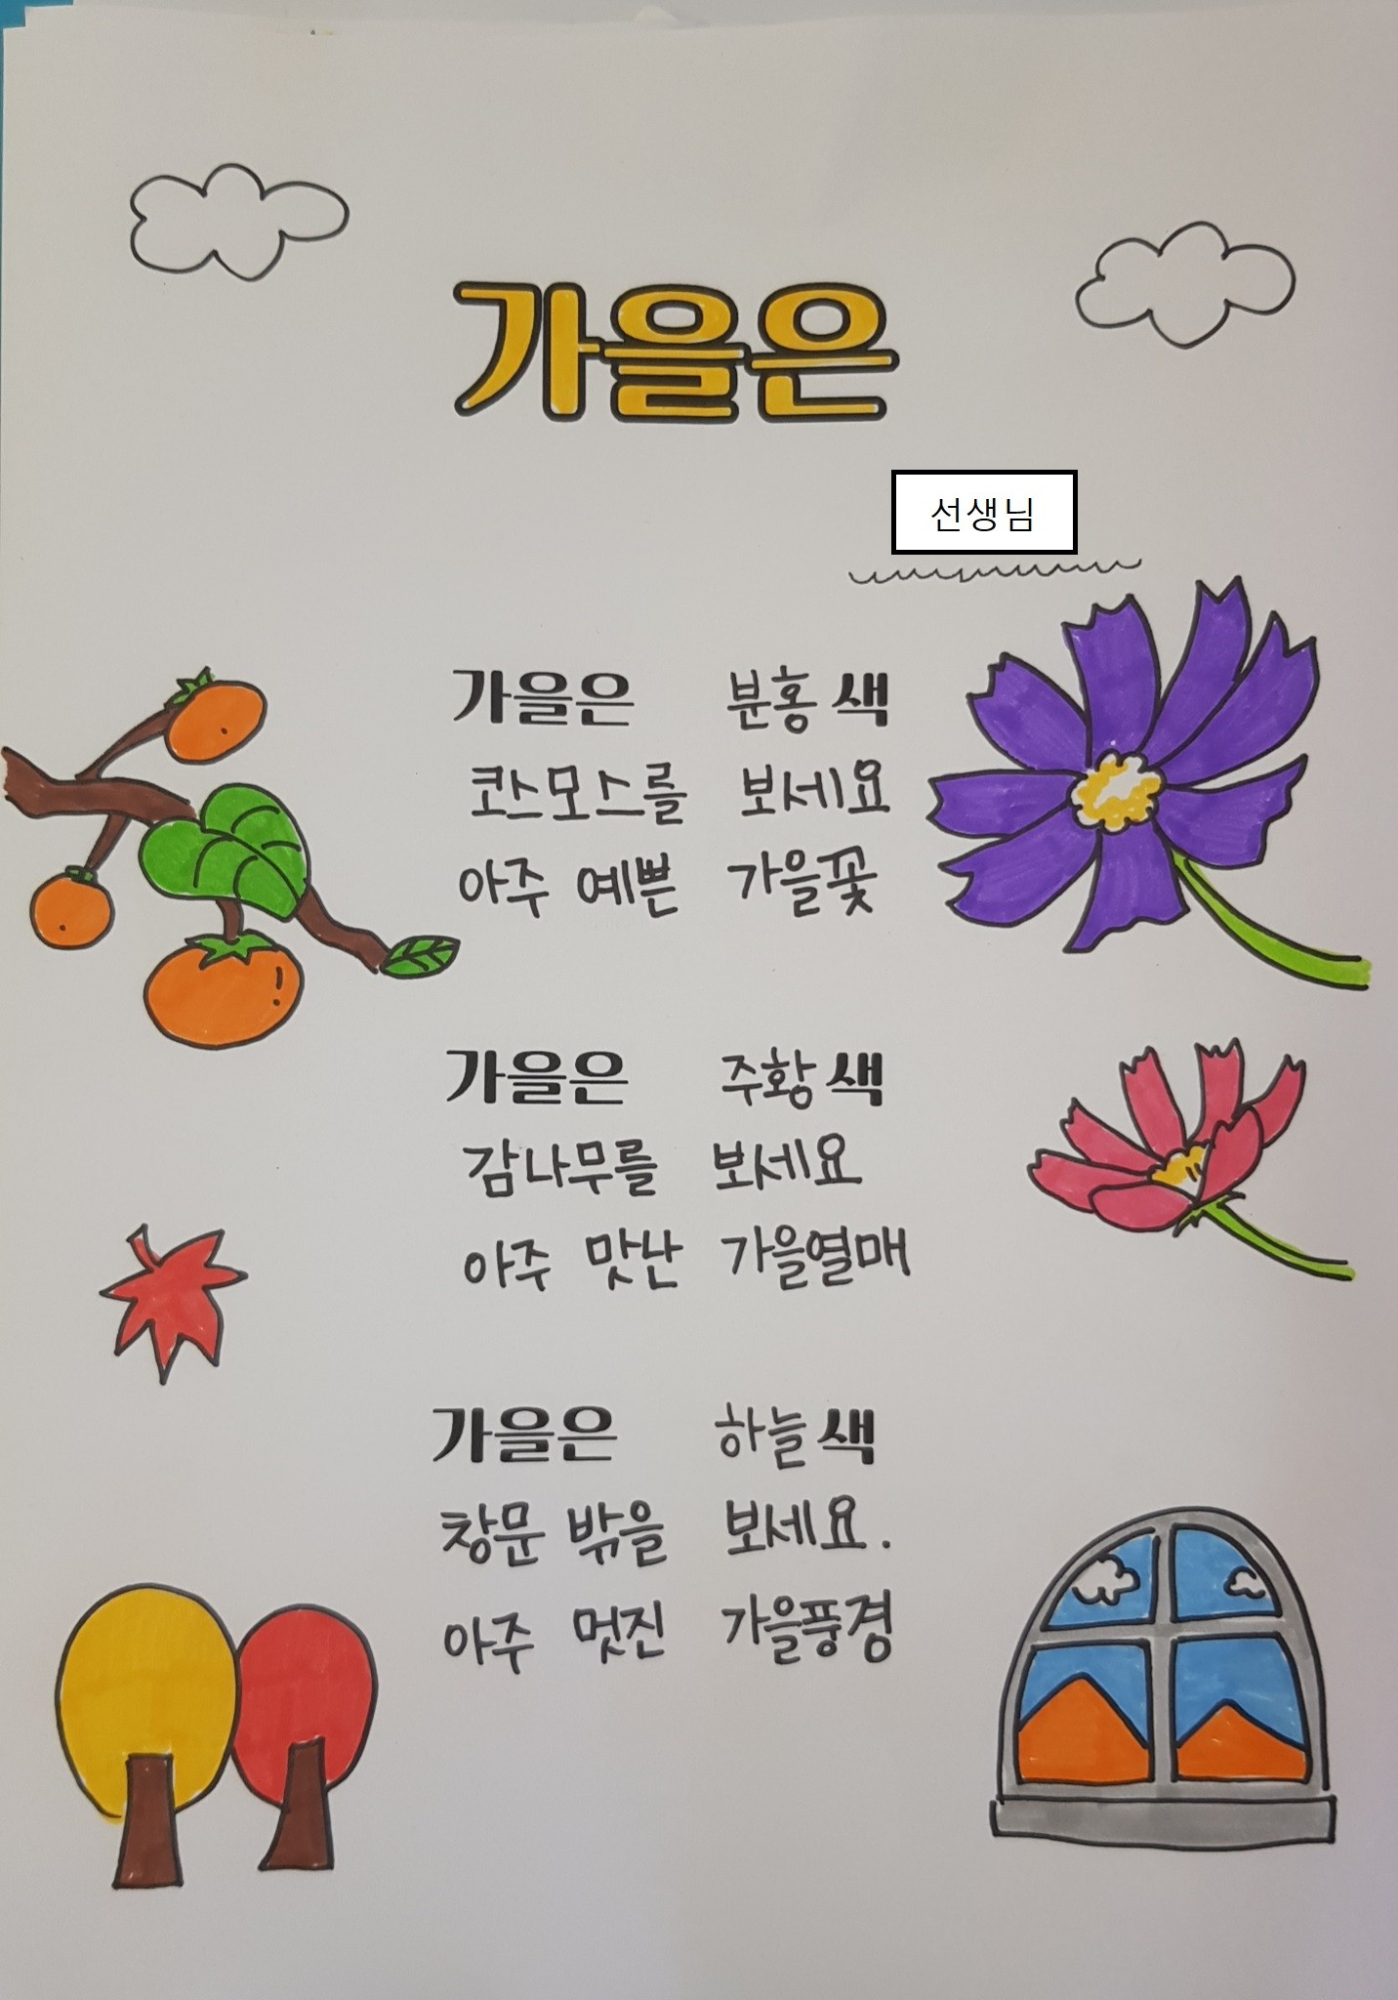 가을은
선생님
가을은 분홍색
코스모스를 보세요
아주 예쁜 가을꽃
가을은 주황색
감나무를 보세요
아주 맛난 가을열매
가을은 하늘색
창문 밖을 보세요.
아주 멋진 가을풍경